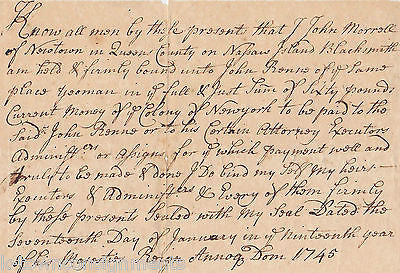 Know all men by these presents that I John Morrell
of Newtown in Queens County on Nasaw Island Blacksmith
am held & firmly bound unto John Renne of ye same
place yeoman in ye full & Just Sum of Sixty pounds
Current Money of ye Colony of Newyork to be paid to the
Said John Renne or to his Certain Attorney Executors
Administers or Assigns for ye which payment well and
truly to be made & done I Do bind my Self My heirs
Executors & Administers & Every of them firmly
by these presents Sealed with My Seal Dated the
Seventeenth Day of January in ye Nineteenth year
of his Majesties Reign Annoq Dom 1745